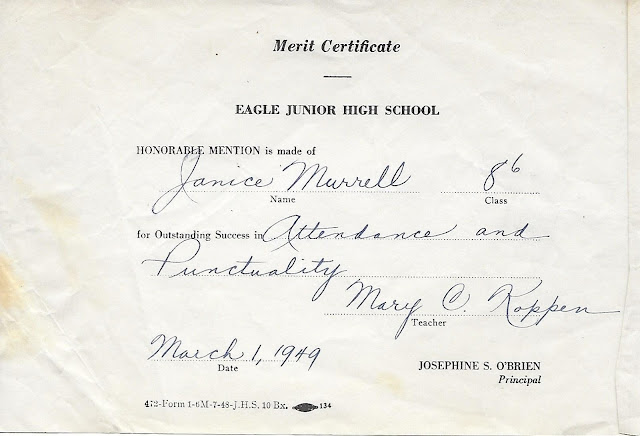 Merit Certificate
EAGLE JUNIOR HIGH SCHOOL
HONORABLE MENTION is made of
Janice Murrell 8⁶
Name Class
for Outstanding Success in Attendance and
Punctuality
Mary C. Koppen
Teacher
March 1, 1949
Date
JOSEPHINE S. O'BRIEN
Principal
472-Form 1-6M-7-48-J.H.S. 10 Bx. 134